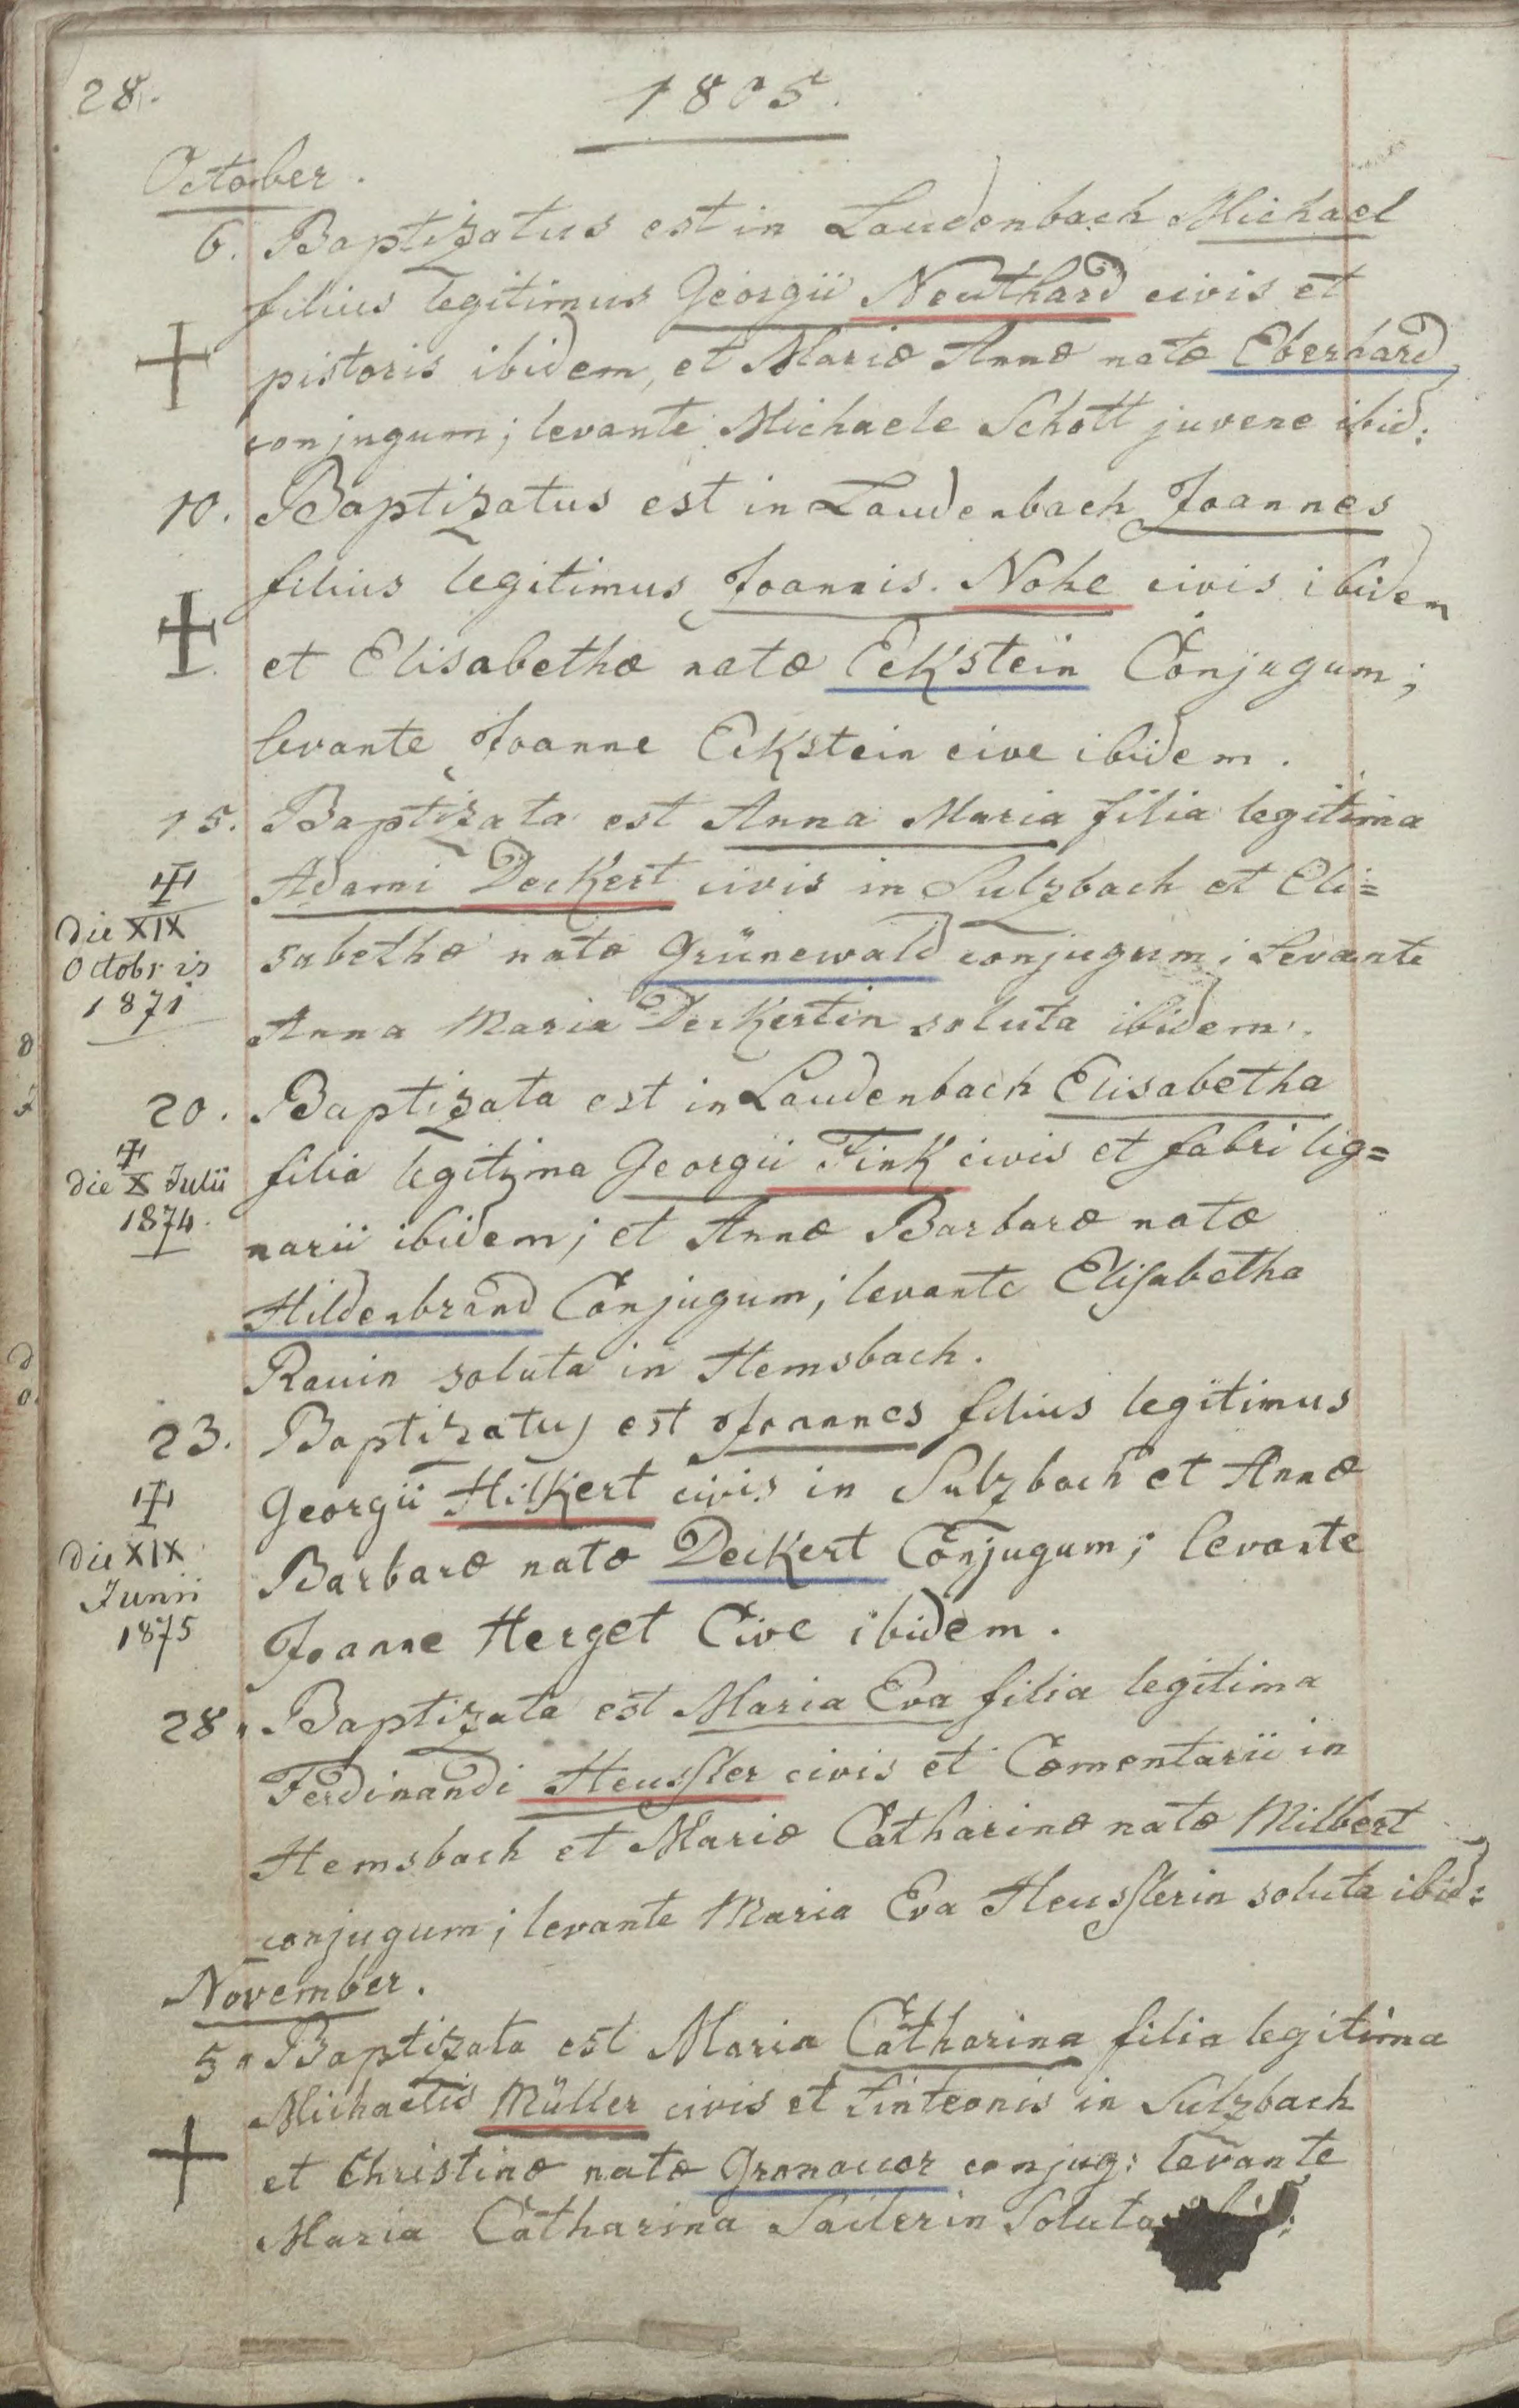 28.
1805.
October.
6. Baptizatus est in Laudenbach Michael
filius legitimus Georgii Neuthard civis et
pistoris ibidem, et Mariæ Annæ natæ Eberhard
conjugum; levante Michaele Schott juvene ibid:
10. Baptizatus est in Laudenbach Joannes
filius legitimus Joannis Nohe civis ibidem
et Elisabethæ natæ Eckstein Conjugum;
levante Joanne Eckstein cive ibidem.
15. Baptizata est Anna Maria filia legitima
Adami Deckert civis in Sulzbach et Eli=
die XIX
Octobris
1871
sabethæ natæ Grünewald conjugum; Levante
Anna Maria Deckertin soluta ibidem.
20. Baptizata est in Laudenbach Elisabetha
die X Julii
1874.
filia legitima Georgii Fink civis et fabri lig=
narii ibidem; et Annæ Barbaræ natæ
Hildenbrand Conjugum; levante Elisabetha
Rauin soluta in Hemsbach.
23. Baptizatus est Joannes filius legitimus
Georgii Hilkert civis in Sulzbach et Annæ
die XIX
Junii
1875
Barbaræ natæ Deckert Conjugum; levante
Joanne Herget Cive ibidem.
28. Baptizata est Maria Eva filia legitima
Ferdinandi Heussler civis et Cæmentarii in
Hemsbach et Mariæ Catharinæ natæ Milbert
conjugum; levante Maria Eva Heusslerin soluta ibid:
November.
5. Baptizata est Maria Catharina filia legitima
Michaelis Müller civis et Linteonis in Sulzbach
et Christinæ natæ Gronauer conjug: levante
Maria Catharina Sailerin Soluta